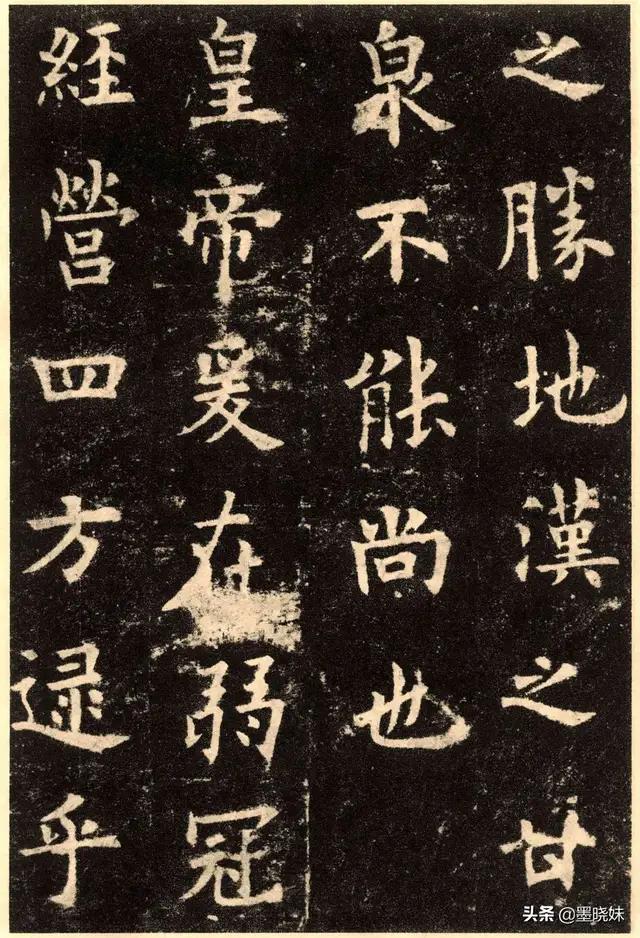 之勝地漢之甘
泉不能尚也
皇帝爰在弱冠
經營四方逯乎
头条 @墨晓妹